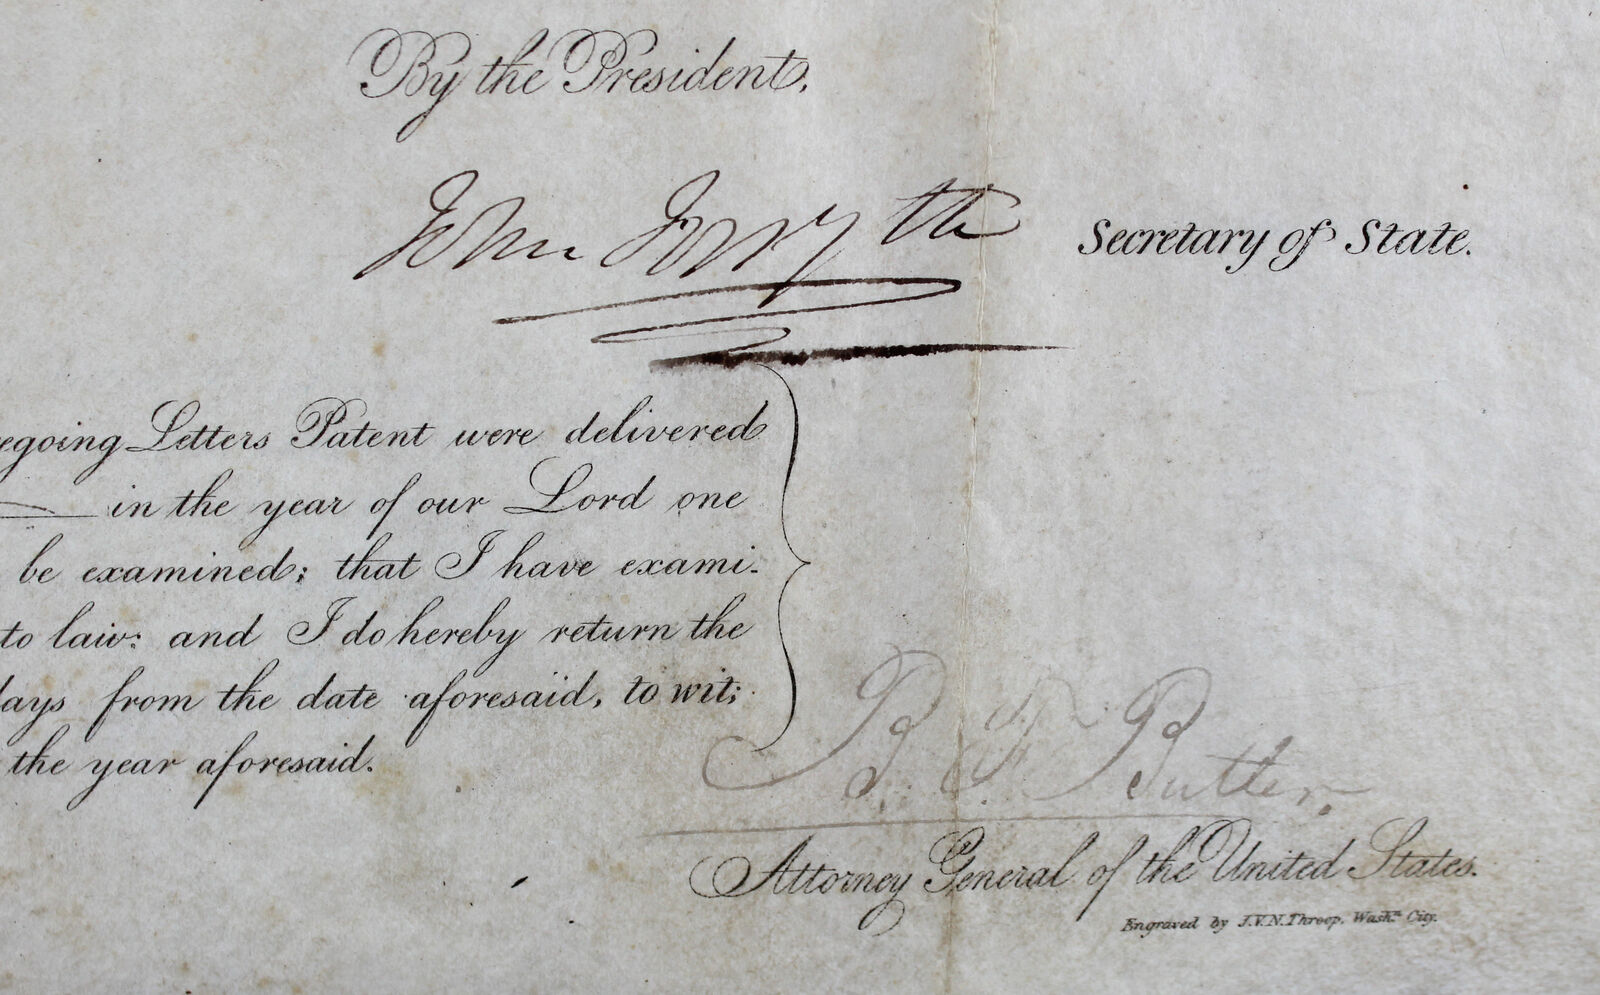 By the President.
John Forsyth Secretary of State.
egoing Letters Patent were delivered
in the year of our Lord one
be examined; that I have exami-
to law: and I do hereby return the
days from the date aforesaid, to wit:
the year aforesaid.
B. F. Butler.
Attorney General of the United States.
Engraved by J.V.N. Throop, Washn. City.